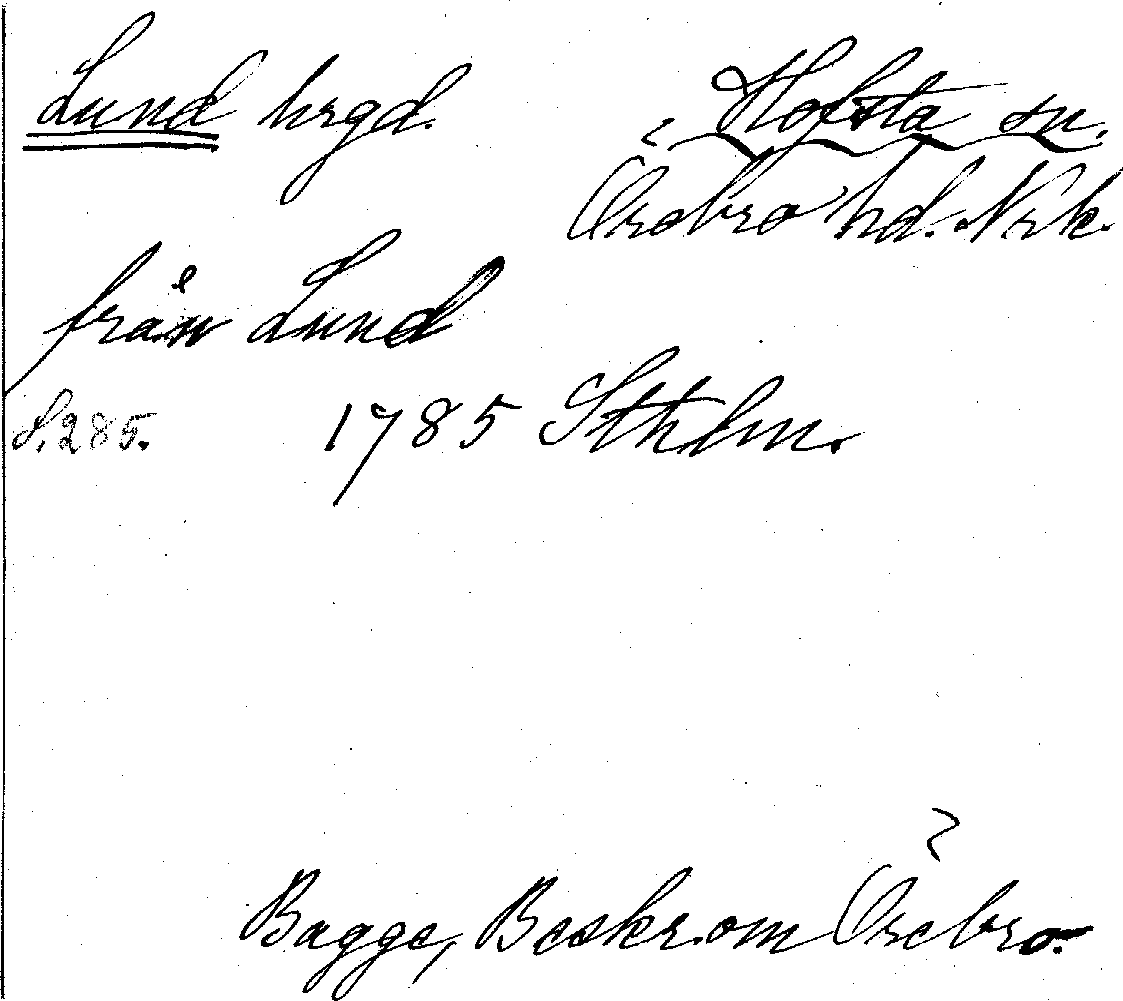 Lund hrgd. Hofsta sn.
Örebro hd. Nrk.
från Lund
S. 285. 1785 Sthlm.
Bagge, Beskr. om Örebro.